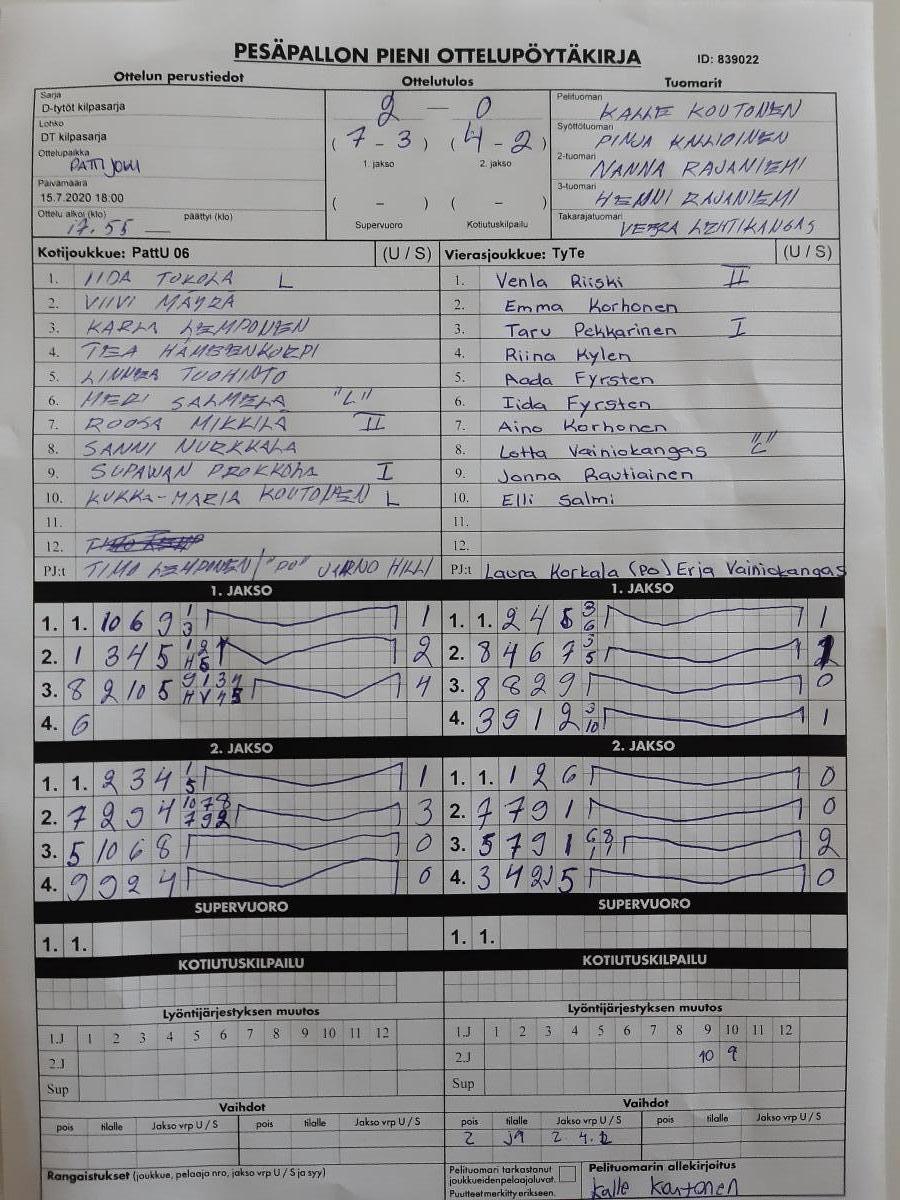 PESÄPALLON PIENI OTTELUPÖYTÄKIRJA ID: 839022
Ottelun perustiedot Ottelutulos Tuomarit
Sarja
D-tytöt kilpasarja
Lohko
DT kilpasarja
Ottelupaikka
PATTIJOKI
Päivämäärä
15.7.2020 18:00
Ottelu alkoi (klo) 17.55 päättyi (klo)
2 — 0
(7 - 3) (4 - 2)
1. jakso 2. jakso
( - ) ( - )
Supervuoro Kotiutuskilpailu
Pelituomari KALLE KOUTONEN
Syöttötuomari PINJA KALLIOINEN
2-tuomari NANNA RAJANIEMI
3-tuomari HENNI RAJANIEMI
Takarajatuomari VEERA LEHTIKANGAS
Kotijoukkue: PattU 06 (U / S)
1. IIDA TOKOLA L
2. VIIVI MÄYRÄ
3. KARLA LEMPONEN
4. TEA HÄMEENKORPI
5. LINNEA TUOHINTO
6. MERI SALMELA "L"
7. ROOSA MIKKILÄ II
8. SANNI NURKKALA
9. SUPAWAN PROKKOLA I
10. KUKKA-MARIA KOUTONEN L
11.
12.
PJ:t TIMO LEMPONEN / "PO" JARNO HILLI
Vierasjoukkue: TyTe (U / S)
1. Venla Riiski II
2. Emma Korhonen
3. Taru Pekkarinen I
4. Riina Kylen
5. Aada Fyrsten
6. Iida Fyrsten
7. Aino Korhonen
8. Lotta Vainiokangas "L"
9. Jonna Rautiainen
10. Elli Salmi
11.
12.
PJ:t Laura Korkala (PO) Erja Vainiokangas
1. JAKSO
1. 1. 10 6 9 1 3 1
2. 1 3 4 5 2
3. 8 2 10 5 4
4. 6
1. JAKSO
1. 1. 2 4 5 3 6 1
2. 8 4 6 7 3 5 1
3. 8 8 2 9 0
4. 3 9 1 2 3 10 1
2. JAKSO
1. 1. 2 3 4 1 5 1
2. 7 2 9 4 10 7 8 7 9 2 3
3. 5 10 6 8 0
4. 9 9 2 4 0
2. JAKSO
1. 1. 1 2 6 0
2. 7 7 9 1 0
3. 5 7 9 1 6 8 1 7 2
4. 3 4 2J 5 0
SUPERVUORO
1. 1.
SUPERVUORO
1. 1.
KOTIUTUSKILPAILU
KOTIUTUSKILPAILU
Lyöntijärjestyksen muutos
1.J 1 2 3 4 5 6 7 8 9 10 11 12
2.J
Sup
Lyöntijärjestyksen muutos
1.J 1 2 3 4 5 6 7 8 9 10 11 12
2.J 10 9
Sup
Vaihdot
pois tilalle Jakso vrp U / S pois tilalle Jakso vrp U / S
Vaihdot
pois tilalle Jakso vrp U / S pois tilalle Jakso vrp U / S
2 J1 2 4.
Rangaistukset (joukkue, pelaaja nro, jakso vrp U / S ja syy)
Pelituomari tarkastanut
joukkueidenpelaajaluvat.
Puutteet merkitty erikseen.
Pelituomarin allekirjoitus
Kalle Koutonen